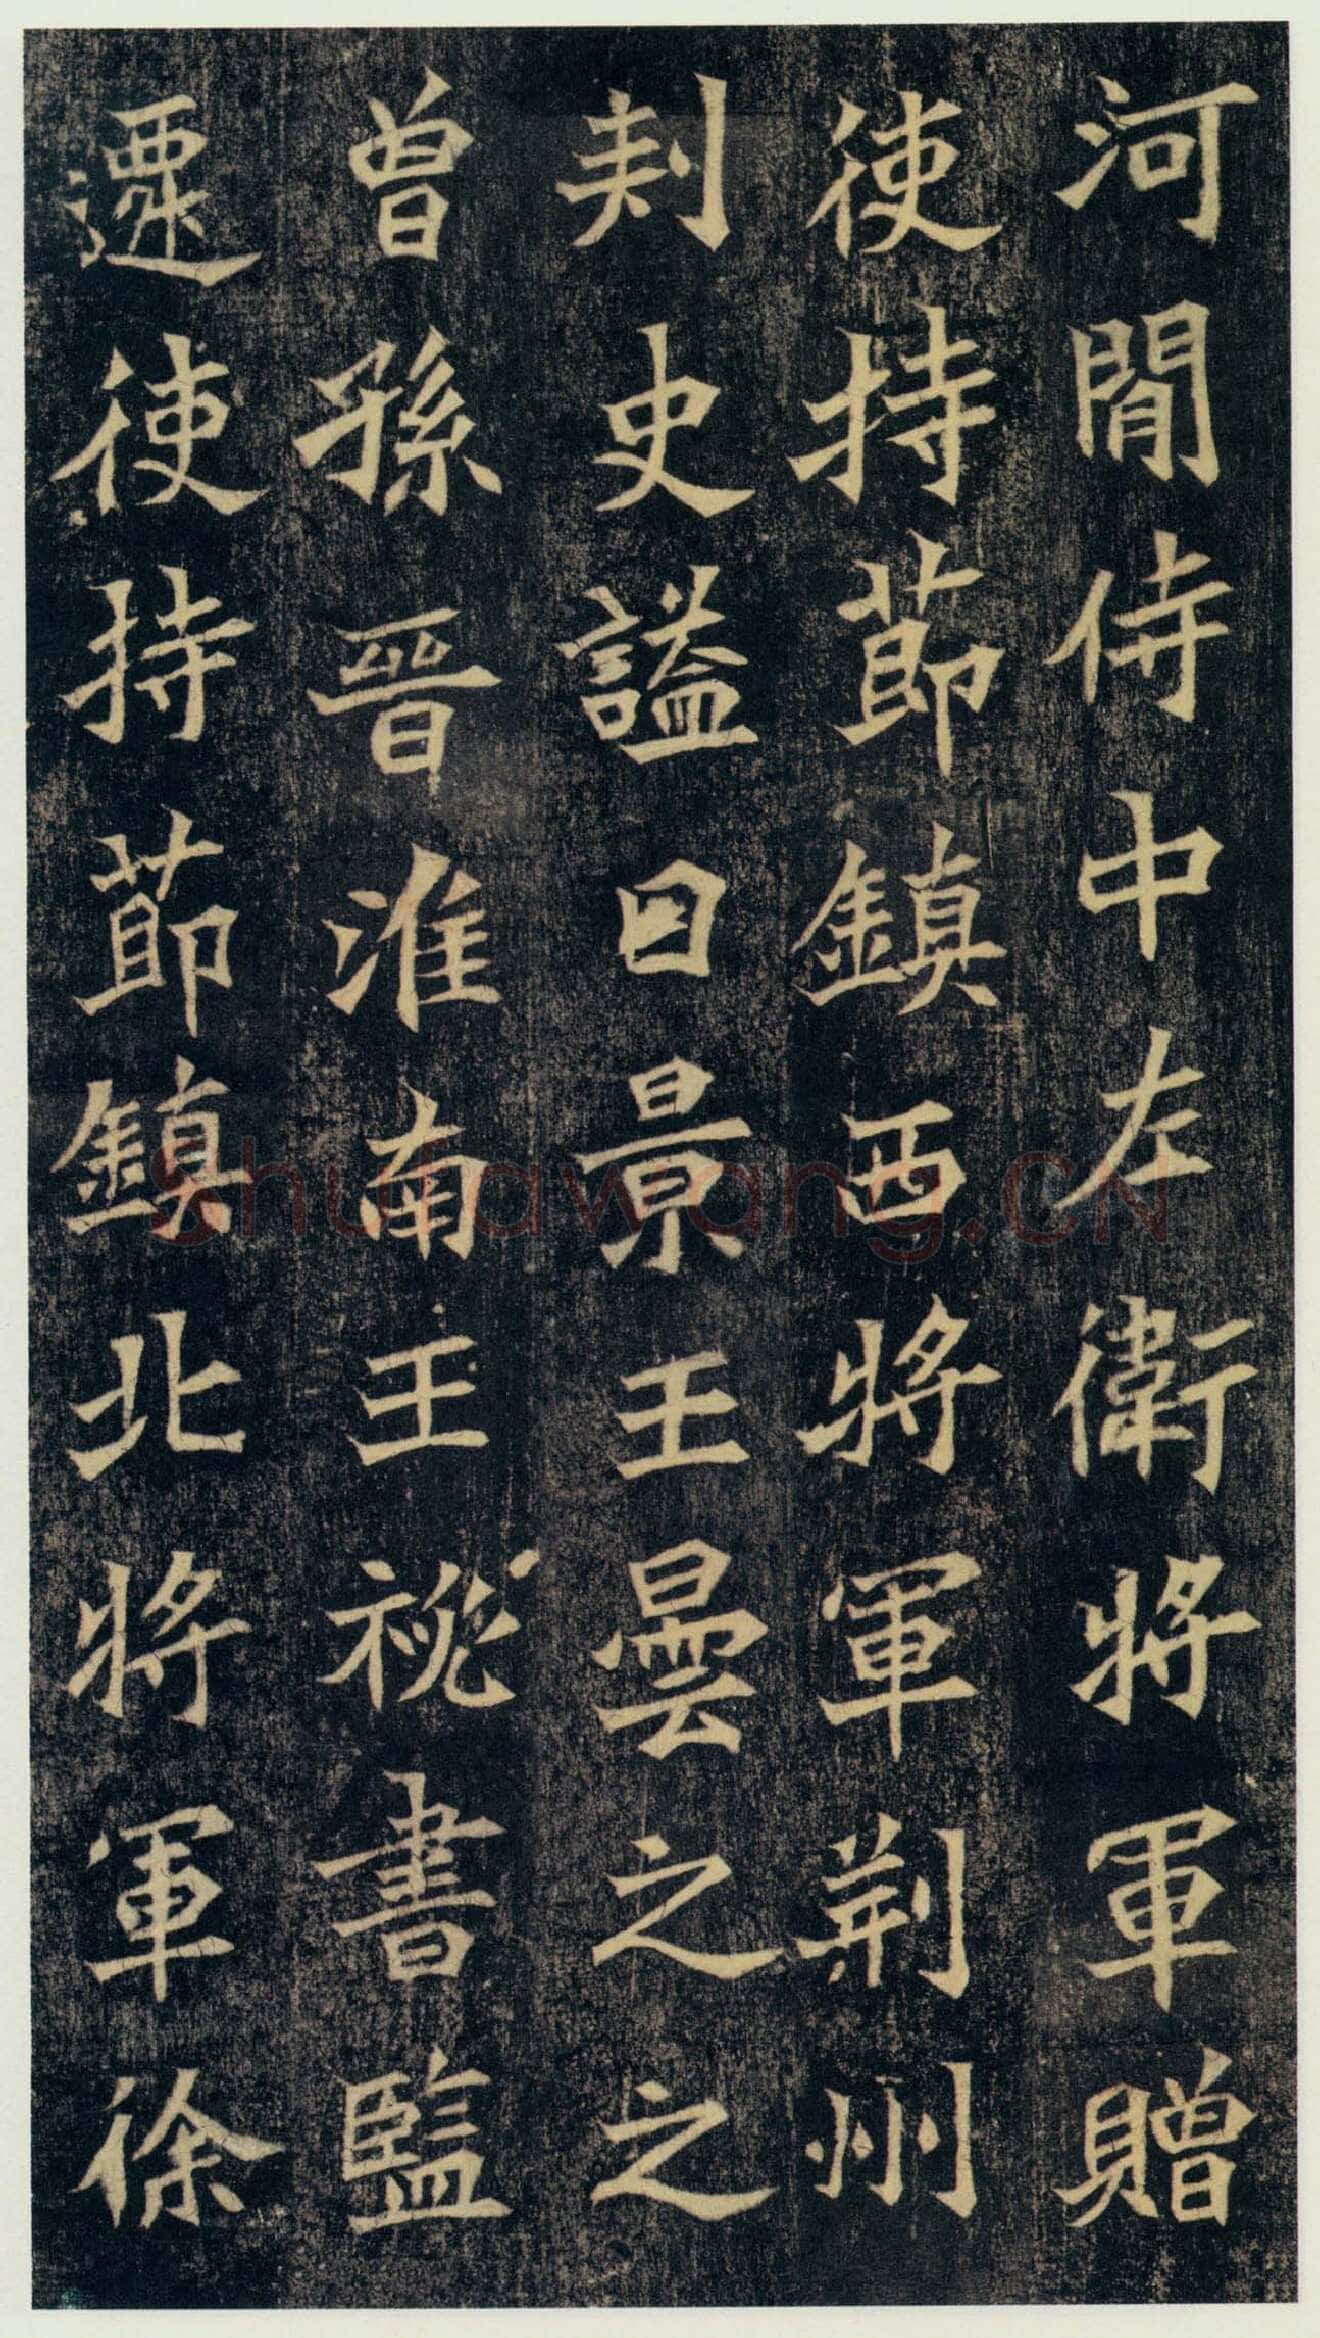 河間侍中左衛將軍贈
使持節鎮西將軍荊州
刾史謚曰景王曇之之
曾孫晉淮南王祕書監
遷使持節鎮北將軍徐
shufawang.cn